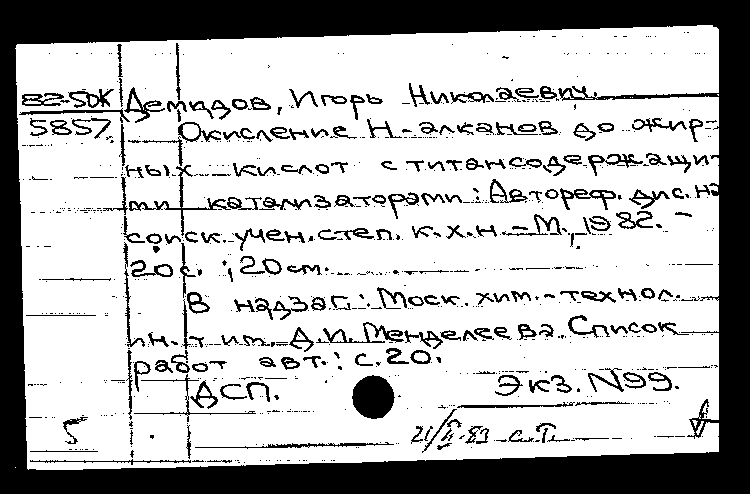 82-5ДК Демидов, Игорь Николаевич.
5857. Окисление Н-алканов до жир-
ных кислот с титансодержащи-
ми катализаторами: Автореф. дис. на
соиск. учен. степ. к.х.н. - М., 1982. -
20 с. ; 20 см.
В надзаг.: Моск. хим.-технол.
ин-т им. Д.И. Менделеева. Список
работ авт.: с.20.
ДСП. Экз. N99.
5 21/II-83 с.т.